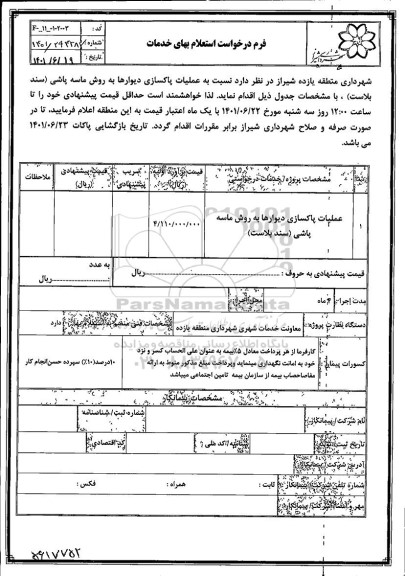 فرم درخواست استعلام بهای خدمات
کد: ۴-۱۱-۰۱-۲-۰۰۳
شماره:
تاریخ: ۱۴۰۱/۶/۱۹
شهرداری منطقه یازده شیراز در نظر دارد نسبت به عملیات پاکسازی دیوارها به روش ماسه پاشی (سند
بلاست) ، با مشخصات جدول ذیل اقدام نماید. لذا خواهشمند است حداقل قیمت پیشنهادی خود را تا
ساعت ۱۲:۰۰ روز سه شنبه مورخ ۱۴۰۱/۰۶/۲۲ با یک ماه اعتبار قیمت به این منطقه اعلام فرمایید، تا در
صورت صرفه و صلاح شهرداری شیراز برابر مقررات اقدام گردد. تاریخ بازگشایی پاکات ۱۴۰۱/۰۶/۲۳
می باشد.
مشخصات پروژه/خدمات درخواستی
(ریال)
ضریب پیشنهادی
قیمت پیشنهادی (ریال)
ملاحظات
۱
عملیات پاکسازی دیوارها به روش ماسه
پاشی (سند بلاست)
۴/۱۱۰/۰۰۰/۰۰۰
قیمت پیشنهادی به حروف : ریال
به عدد
: ریال
مدت اجرا:
ماه
محل اجرا:
دستگاه نظارت پروژه:
معاونت خدمات شهری شهرداری منطقه یازده
دارد
کسورات پیمان
کارفرما از هر پرداخت معادل ۵٪بیمه به عنوان علی الحساب کسر و نزد
خود به امانت نگهداری مینماید وپرداخت مبلغ مذکور منوط به ارائه
مفاصاحساب بیمه از سازمان بیمه تامین اجتماعی میباشد
۱۰درصد(۱۰٪) سپرده حسن‌انجام کار
مشخصات پیمانکار
نام شرکت/پیمانکار:
شماره ثبت/شناسنامه
تاریخ ثبت
شناسه/کد ملی :
کد اقتصادی:
آدرس شرکت/پیمانکار:
شماره تلفن شرکت/پیمانکار
ثابت :
همراه :
فکس :
مهر و امضاء شرکت/پیمانکار:
ParsNamadData
پایگاه اطلاع رسانی مناقصه و مزایده
۵۶۱۷۷۵۲